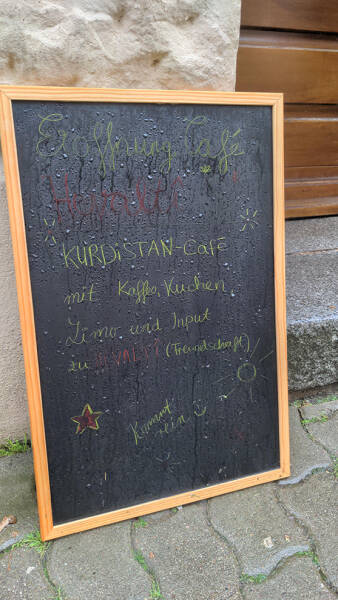 Eröffnung Café
KURDiSTAN-Café
mit Kaffee, Kuchen,
Limo und Input
zu (Freundschaft)
Kommt
rein